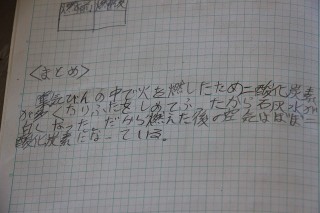 <まとめ>
集気びんの中で火を燃したため二酸化炭素
が多くなりふたをしめてふったから石灰水が
白くなった。だから燃えた後の空気はほぼ二
酸化炭素になっている。